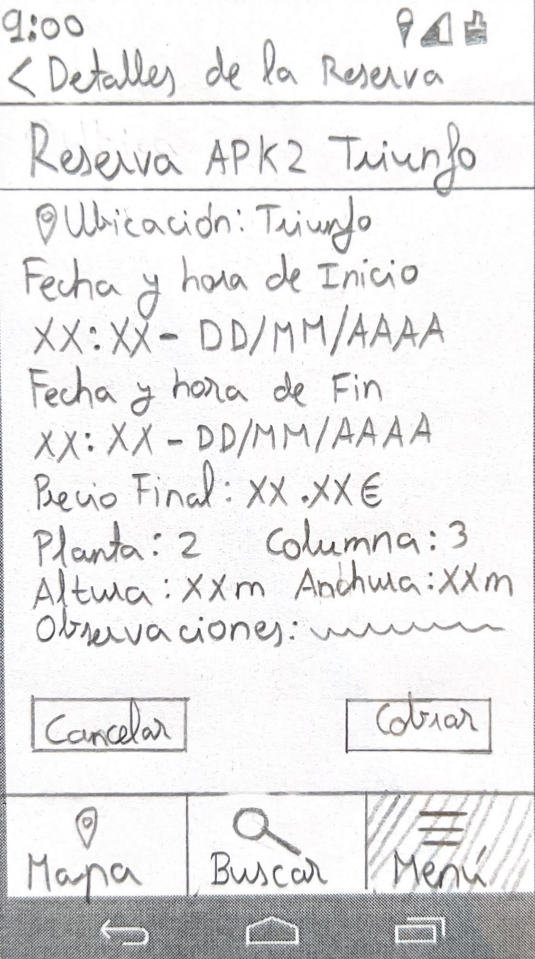 9:00
< Detalles de la Reserva
Reserva APK2 Triunfo
Ubicación: Triunfo
Fecha y hora de Inicio
XX:XX - DD/MM/AAAA
Fecha y hora de Fin
XX:XX - DD/MM/AAAA
Precio Final: XX.XX€
Planta: 2 Columna: 3
Altura: XXm Anchura: XXm
Observaciones:
Cancelar Cobrar
Mapa Buscar Menú